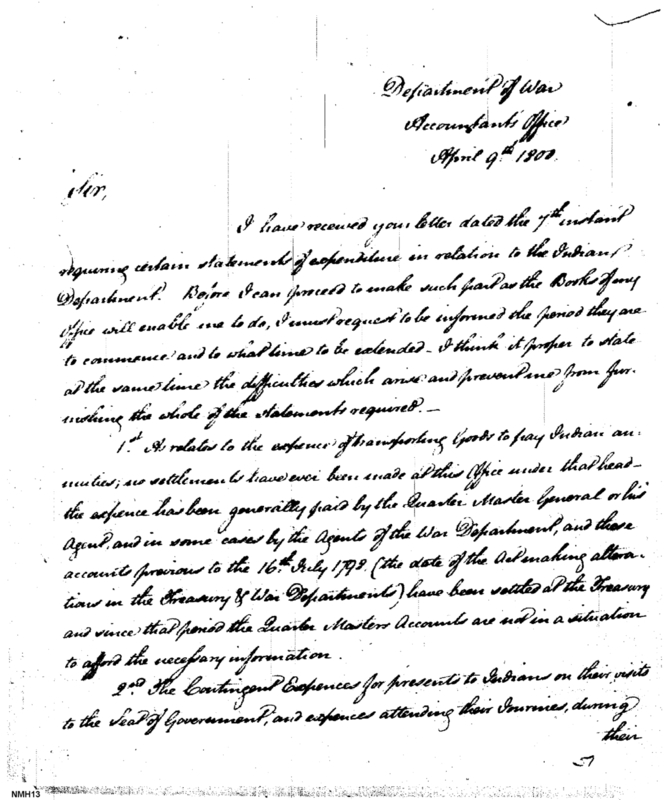 Department of War
Accountants Office
April 9th 1800.
Sir,
I have received your letter dated the 7th instant
requiring certain statements of expenditure in relation to the Indian
Department. Before I can proceed to make such part as the Books of my
Office will enable me to do, I must request to be informed the period they are
to commence and to what time to be extended - I think it proper to state
at the same time the difficulties which arise and prevent me from fur-
nishing the whole of the statements required. -
1.st As relates to the expence of transporting Goods to pay Indian an-
nuities; no settlements have ever been made at this Office under that head -
the expence has been generally paid by the Quarter Master General or his
Agent, and in some cases by the Agents of the War Department, and these
accounts previous to the 16th July 1792 (the date of the Act making altera-
tions in the Treasury & War Departments) have been settled at the Treasury
and since that period the Quarter Masters Accounts are not in a situation
to afford the necessary information.
2.nd The Contingent Expences for presents to Indians on their visits
to the Seat of Government, and expences attending their Journies, during
their
NMH13